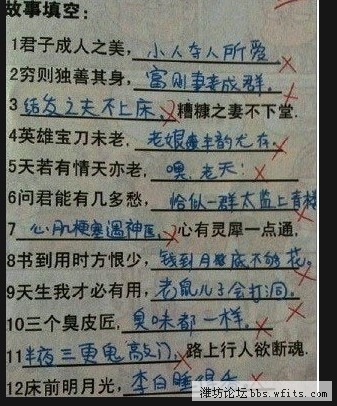 故事填空：
1君子成人之美，小人夺人所爱 ×
2穷则独善其身，富则妻妾成群。×
3 结发之夫不上床，×糟糠之妻不下堂.
4英雄宝刀未老，老娘风韵尤存。×
5天若有情天亦老，噢，老天！×
6问君能有几多愁，恰似一群太监上青楼
7 心肌梗塞遇神医，×心有灵犀一点通，
8书到用时方恨少，钱到月底不够花。×
9天生我才必有用，老鼠儿子会打洞。×
10三个臭皮匠，臭味都一样。×
11半夜三更鬼敲门，×路上行人欲断魂.
12床前明月光，李白睡得
潍坊论坛bbs.wfits.com